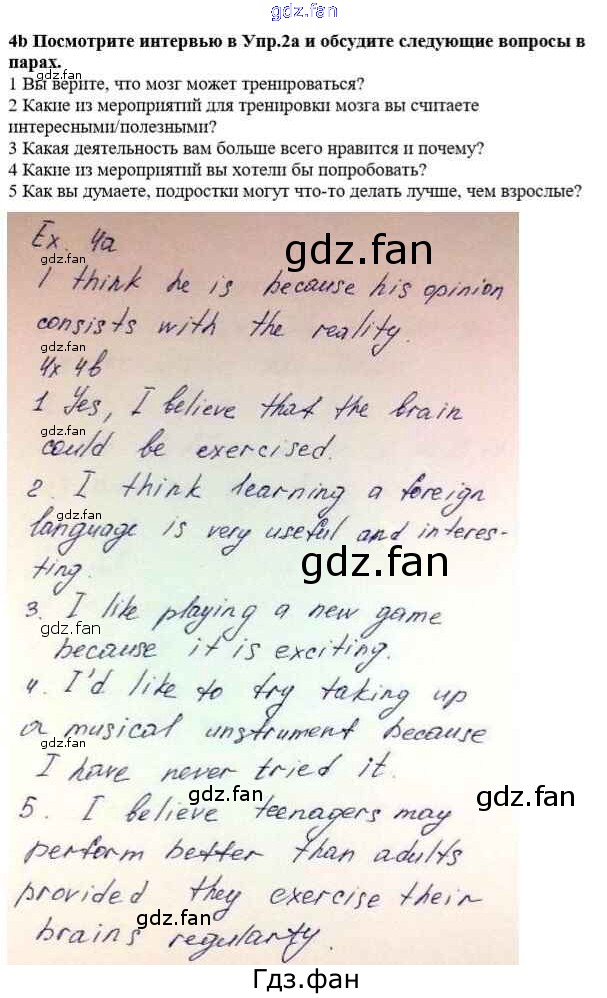 gdz.fan
4b Посмотрите интервью в Упр.2а и обсудите следующие вопросы в
парах.
1 Вы верите, что мозг может тренироваться?
2 Какие из мероприятий для тренировки мозга вы считаете
интересными/полезными?
3 Какая деятельность вам больше всего нравится и почему?
4 Какие из мероприятий вы хотели бы попробовать?
5 Как вы думаете, подростки могут что-то делать лучше, чем взрослые?
Ex. 4a
gdz.fan
gdz.fan
I think he is because his opinion
consists with the reality.
gdz.fan
4x 4b
1 Yes, I believe that the brain
gdz.fan
could be exercised.
2. I think learning a foreign
gdz.fan
language is very useful and interes-
ting.
gdz.fan
3. I like playing a new game
gdz.fan
because it is exciting.
4. I'd like to try taking up
a musical unstrument because
gdz.fan
I have never tried it.
gdz.fan
gdz.fan
5. I believe teenagers may
perform better than adults
provided they exercise their
gdz.fan
brains regularty.
gdz.fan
Гдз.фан